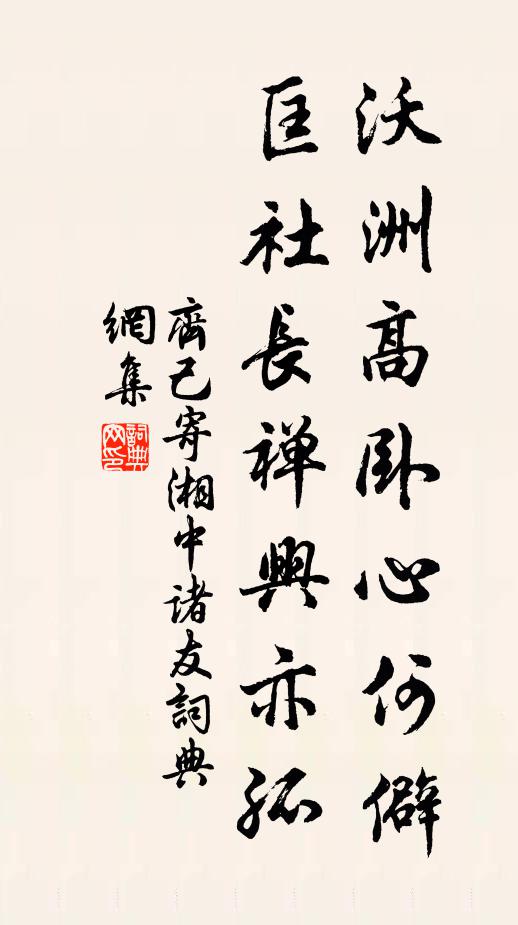 沃洲高卧心何僻
匡社長禅興亦孤
齊己寄湘中诸友詞典
網集
詞典
網印